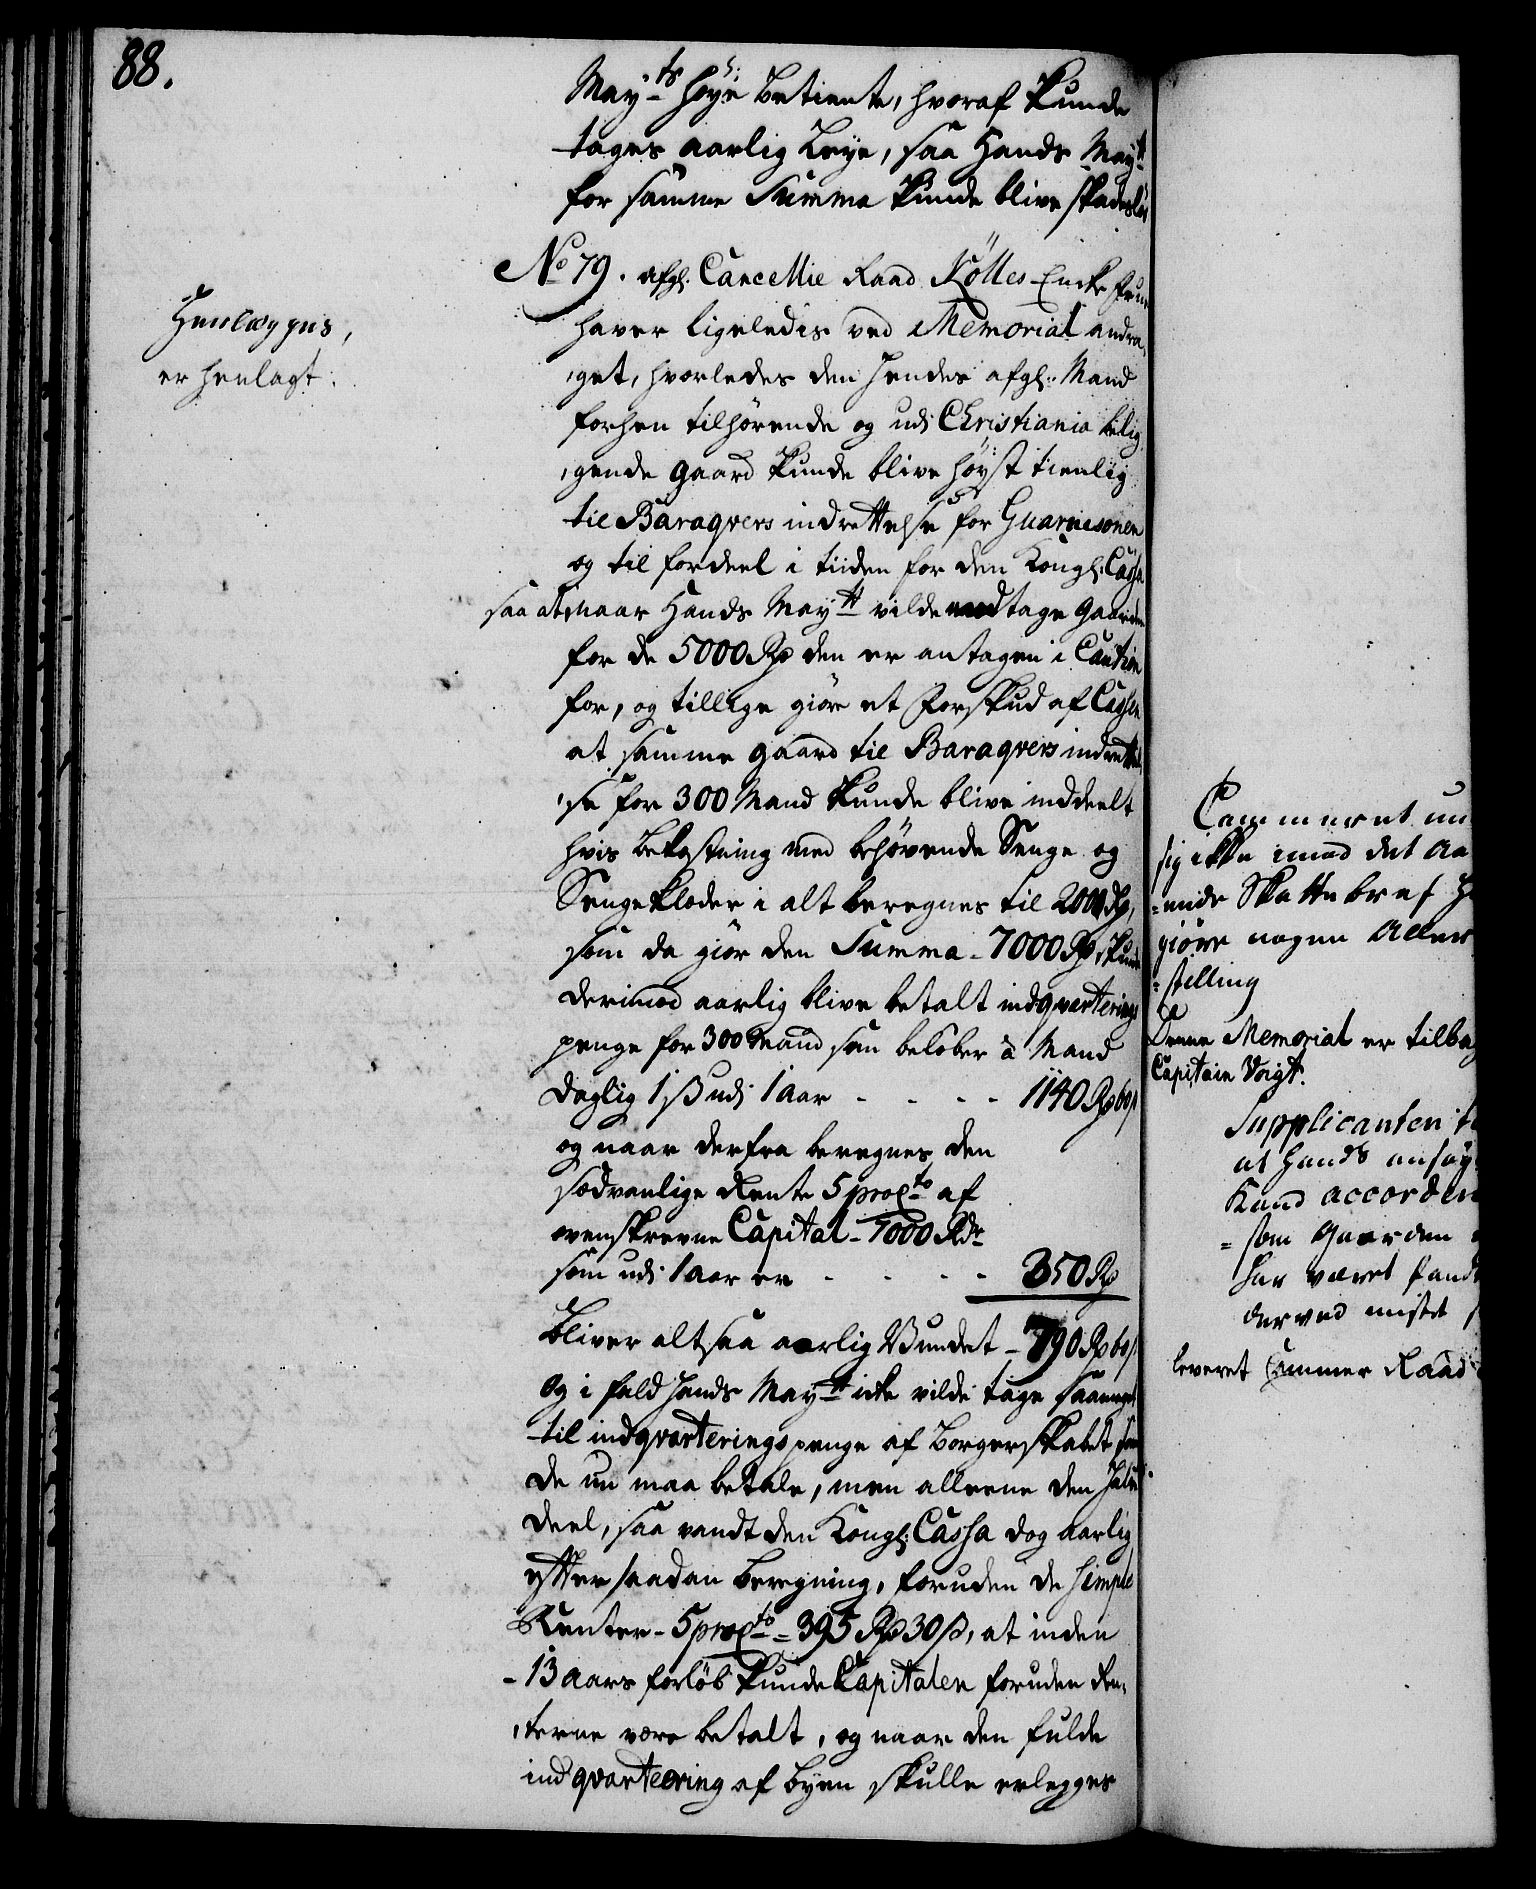 88.
May.ts høye betiente, hvoraf kunde
tages aarlig leye, saa Hands May.tt
for samme Summa kunde blive skadesløs
No 79. afg. Cancellie Raad Kølles Encke frue
Henlægges,
er henlagt.
haver ligeledes ved Memorial andra-
,get, hvorledes den hendes afg. Mand
forhen tilhørende og udi Christiania belig
,gende gaard kunde blive høyst tienlig
til Baraqvers indrettelse for Guarnisonen
og til fordeel i tiiden for den Kongl: Cassa
saa at Naar Hands May.tt vilde modtage gaarden
for de 5000 Rd den er antagen i Caution
for, og tillige giøre et Forskud af Cassen
at samme gaard til Baraqvers indrettel-
,se for 300 Mand kunde blive inddeelt
hvis bekostning med behøvende Senge og
Sengeklæder i alt beregnes til 2000 Rd,
som da giør den Summa - 7000 Rd, kunde
derimod aarlig blive betalt indqvarterings
penge for 300 Mand som beløber à Mand
daglig 1 ß udi 1 Aar - - - - 1140 Rd 60 ß
og naar derfra beregnes den
sædvanlige Rente 5 proc.to af
ovenskrevne Capital - 7000 Rdr
som udi 1 Aar er - - - - 350 Rd
bliver altsaa aarlig Vundet - 790 Rd 60 ß
og i fald Hands May.tt icke vilde tage saameget
til indqvarteringspenge af borgerskabet som
de nu maa betale, men alleene den halve
deel, saa vandt den Kongl: Cassa dog aarlig
efter saadan beregning, foruden de simple
Renter - 5 proc.to = 395 Rd 30 ß, at inden
- 13 aars forløb kunde Capitalen foruden Ren-
,terne være betalt, og naar den fulde
indqvartering af byen skulle erlegges
Cammeret un
sig ikke imod det An
=ende Skattebref H
giøre nogen Aller
=stilling
Denne Memorial er tilbag
Capitain Voigt.
Supplicanten t
at hands ansøg
Kand accordere
= som gaarden
har været pand
derved mistet
leveret Cammer Raad